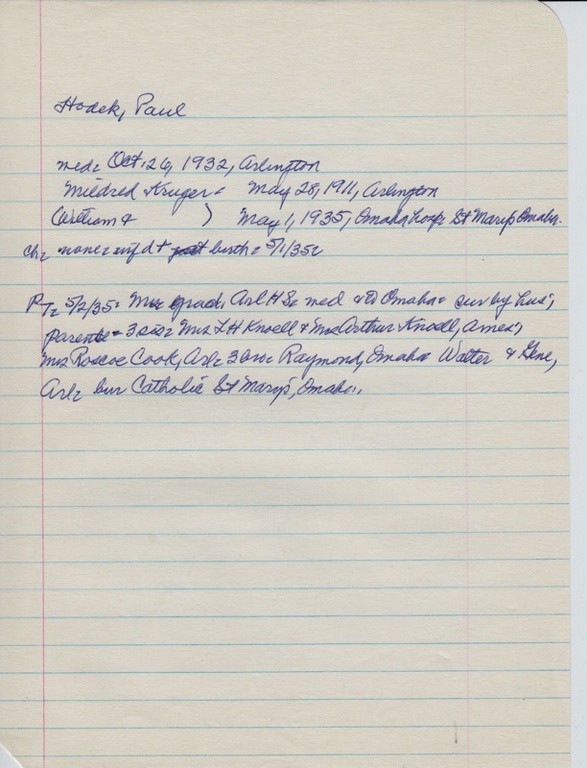 Hodek, Paul
med: Oct. 26, 1932, Arlington
Mildred Kruger - May 28, 1911, Arlington
(William & ) May 1, 1935, Omaha hosp. St Marys Omaha.
Ch: none: inf d + birth: 5/1/35
PT: 5/2/35: Mrs grad. Arl H S: med to Omaha: sur by hus,
parents - 3 sis: Mrs L H Knoell & Mrs Arthur Knoell, Ames,
Mrs Roscoe Cook, Arl: 3 bro: Raymond, Omaha Walter & Gene,
Arl: bur Catholic St Marys, Omaha.